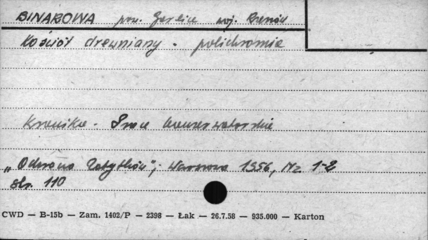 BINAROWA pow. Gorlice woj. Rzeszów
Kościół drewniany - polichromia
Kronika - Prace konserwatorskie
„Ochrona Zabytków”; Warszawa 1956, Nr. 1-2
str. 110
CWD — B-15b — Zam. 1402/P — 2398 — Łak — 26.7.58 — 935.000 — Karton